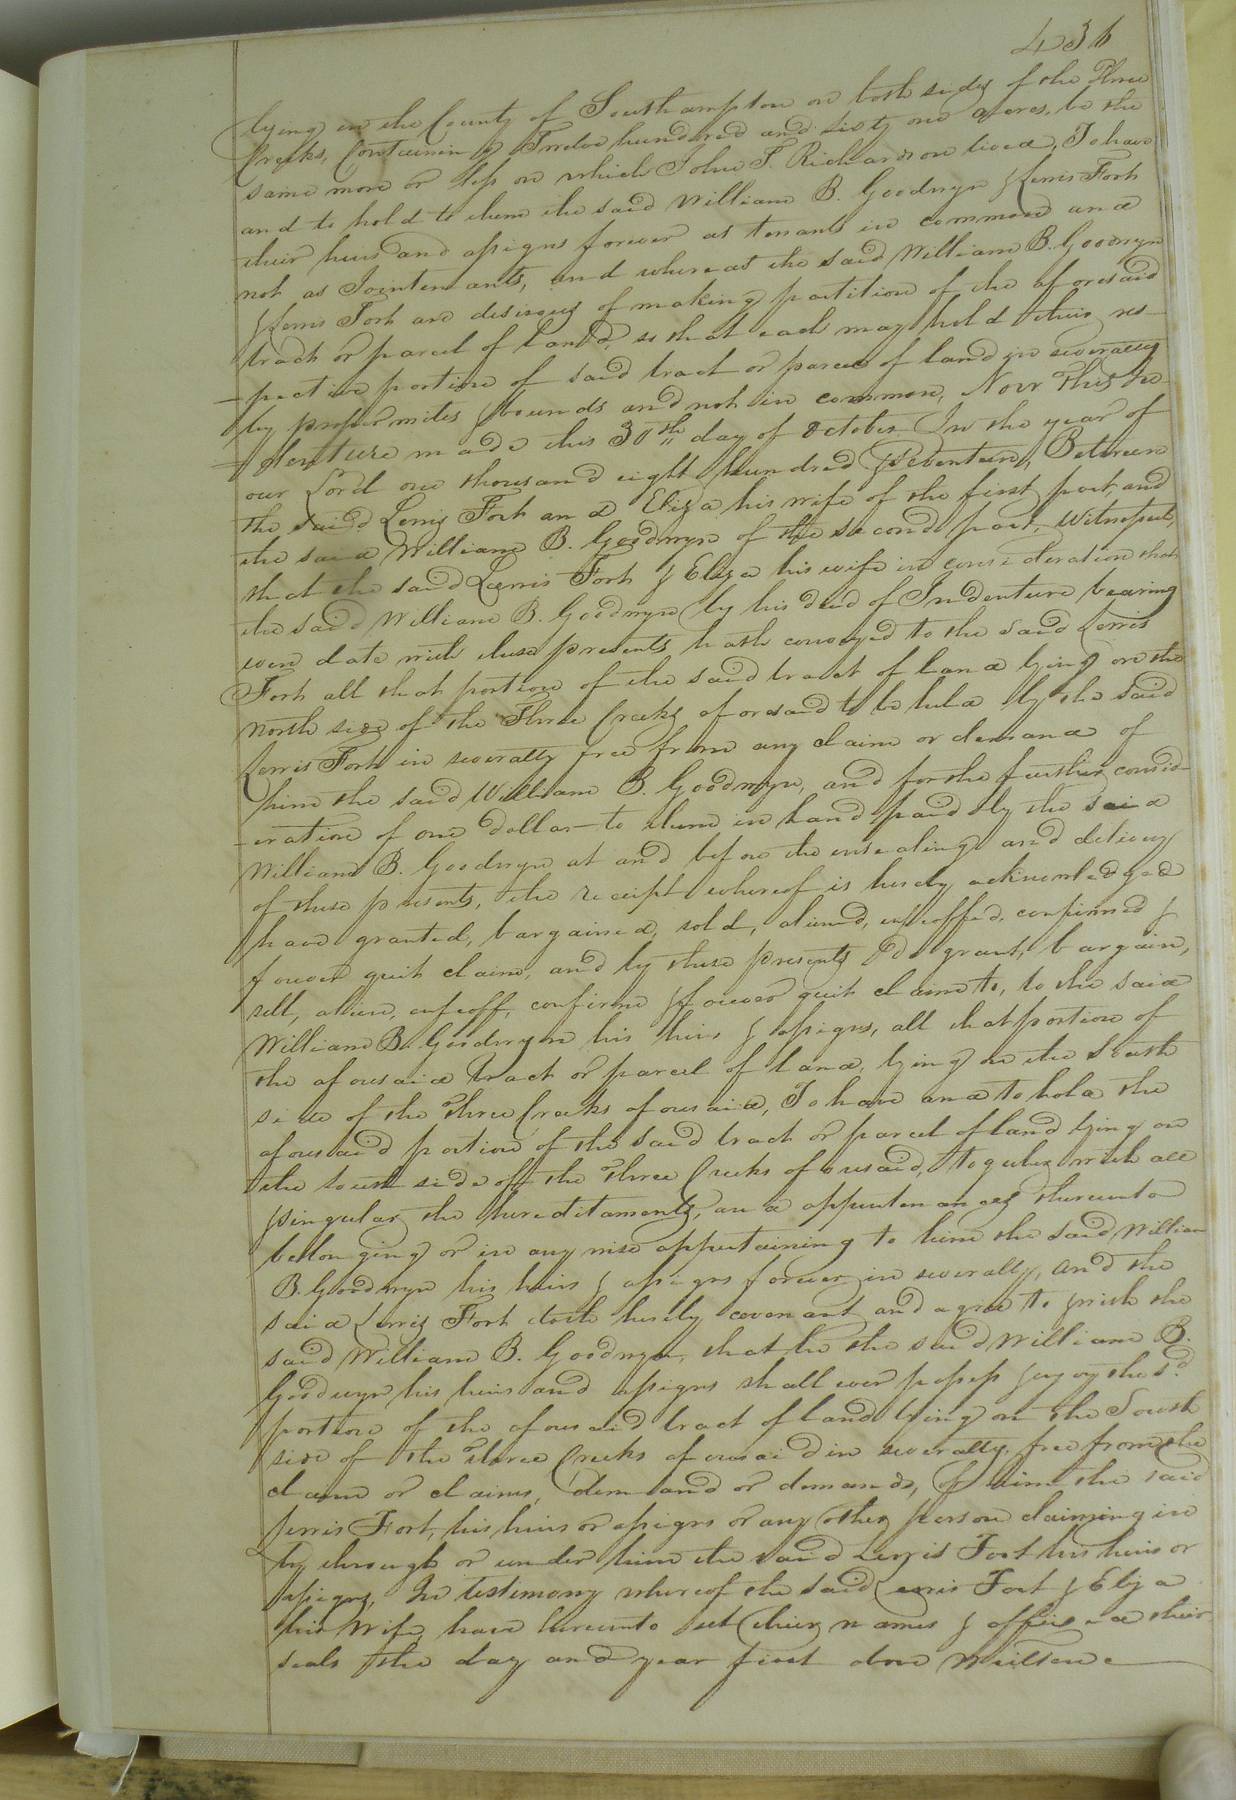 436
lying in the County of Southampton on both sides of the Three
Creeks, Containing Twelve hundred and sixty one acres, be the
same more or less on which John T. Richardson lived, To have
and to hold to them the said William B. Goodwyn & Lewis Fort
their heirs and assigns forever as tenants in common and
not as Jointenants, and whereas the said William B. Goodwyn
& Lewis Fort are desirous of making partition of the aforesaid
tract or parcel of land, so that each may hold their res-
-pective portion of said tract or parcel of land in severalty
by proper mites & bounds and not in common, Now This In-
-denture made this 30th day of October In the year of
our Lord one thousand eight hundred & seventeen, Between
the said Lewis Fort and Eliza his wife of the first part, and
the said William B. Goodwyn of the second part, Witnesseth,
that the said Lewis Fort & Eliza his wife in consideration that
the said William B. Goodwyn by his deed of Indenture bearing
even date with these presents hath conveyed to the said Lewis
Fort all that portion of the said tract of land lying on the
North side of the Three Creeks aforesaid to be held by the said
Lewis Fort in severalty free from any claim or demand of
him the said William B. Goodwyn, and for the further consid-
-eration of one dollar to them in hand paid by the said
William B. Goodwyn at and before the ensealing and delivery
of these presents, the receipt whereof is hereby acknowledged
have granted, bargained, sold, aliened, enfeoffed, confirmed &
forever quit claim, and by these presents Do grant, bargain,
sell, alien, enfeoff, confirm & forever quit claim to, to the said
William B. Goodwyn his heirs & assigns, all that portion of
the aforesaid tract or parcel of land, lying on the South
side of the Three Creeks aforesaid, To have and to hold the
aforesaid portion of the said tract or parcel of land lying on
the South side of the Three Creeks aforesaid, together with all
& singular the hereditaments, and appurtenances thereunto
bellonging or in any wise appurtaining to him the said William
B. Goodwyn his heirs & assigns forever in severalty, and the
said Lewis Fort doth hereby covenant and agree to & with the
said William B. Goodwyn, that he the said William B.
Goodwyn his heirs and assigns shall ever possess & enjoy the sd.
portion of the aforesaid tract of land lying on the South
side of the Three Creeks aforesaid in severalty, free from the
claim or claims, demand or demands, of him the said
Lewis Fort, his heirs or assigns or any other person claiming in
by through or under him the said Lewis Fort his heirs or
assigns, In testimony whereof the said Lewis Fort & Eliza
his Wife have hereunto set their names & affixed their
seals the day and year first above written